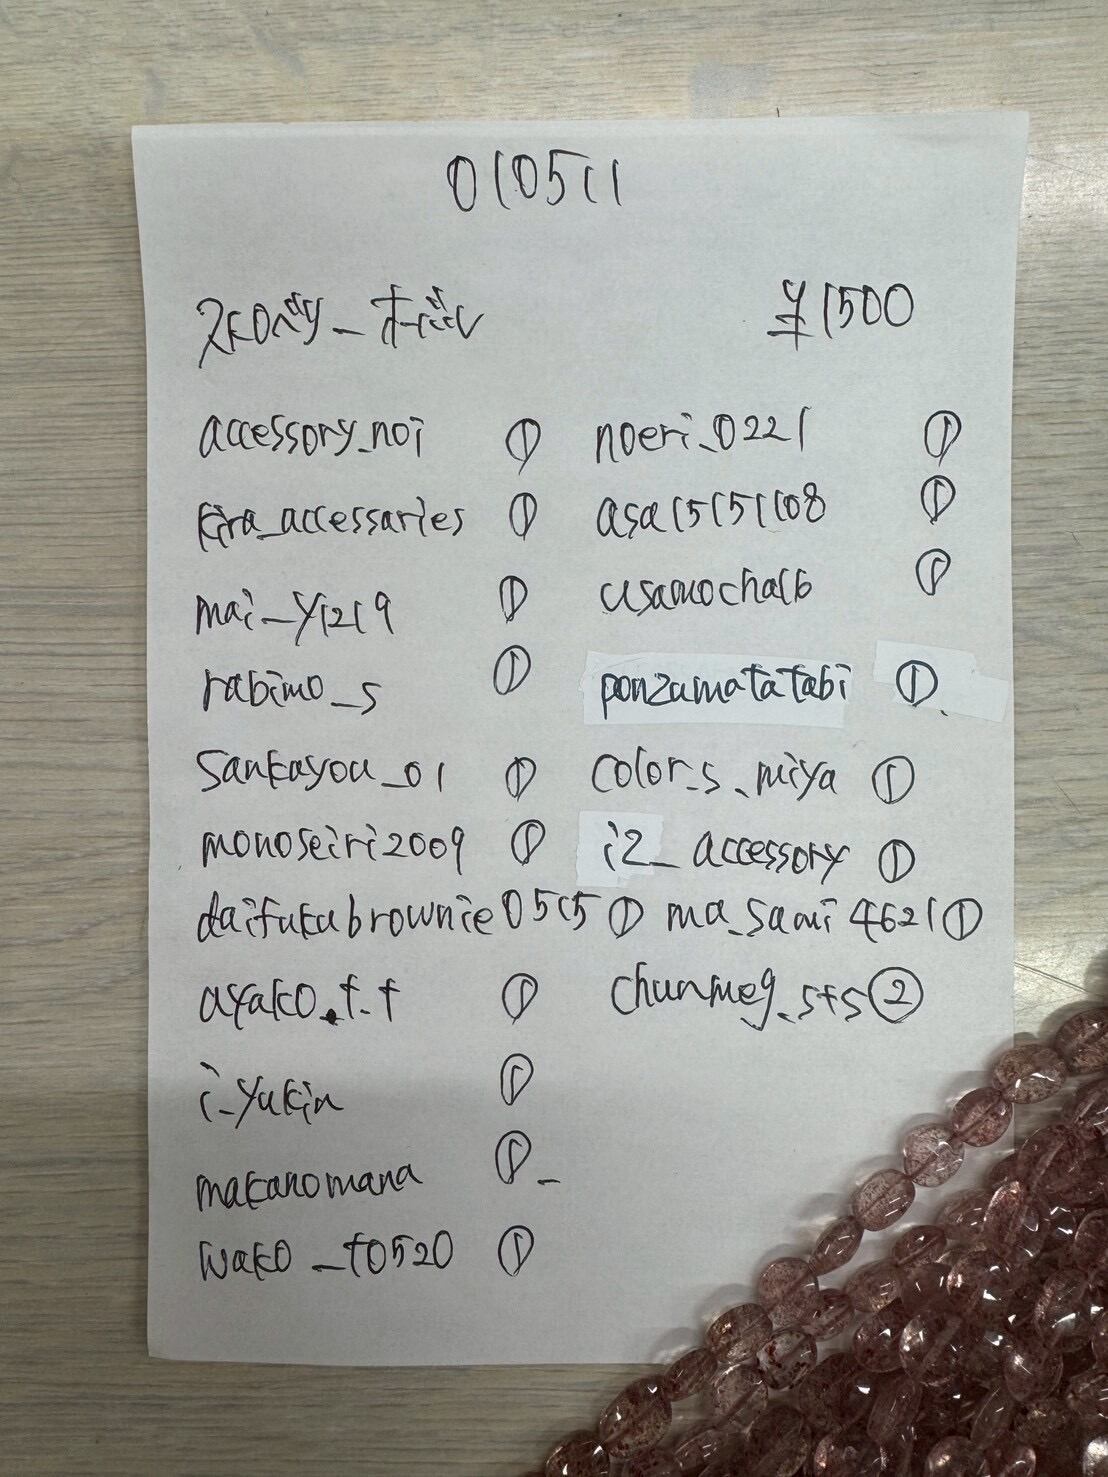 010511
ストロベリーオーバル ¥1500
accessory_noi ①
kira_accessaries ①
mai_y1219 ①
rabimo_s ①
sankayou_01 ①
monoseiri2009 ①
daifukubrownie0515 ①
ayako.t.t ①
i_yukin ①
makanomana ①
wako_t0520 ①
noeri_0221 ①
asa15151108 ①
usamocha16 ①
ponzumatatabi ①
color_s_miya ①
i2_accessory ①
ma_sami4621 ①
chunmeg_sts ②